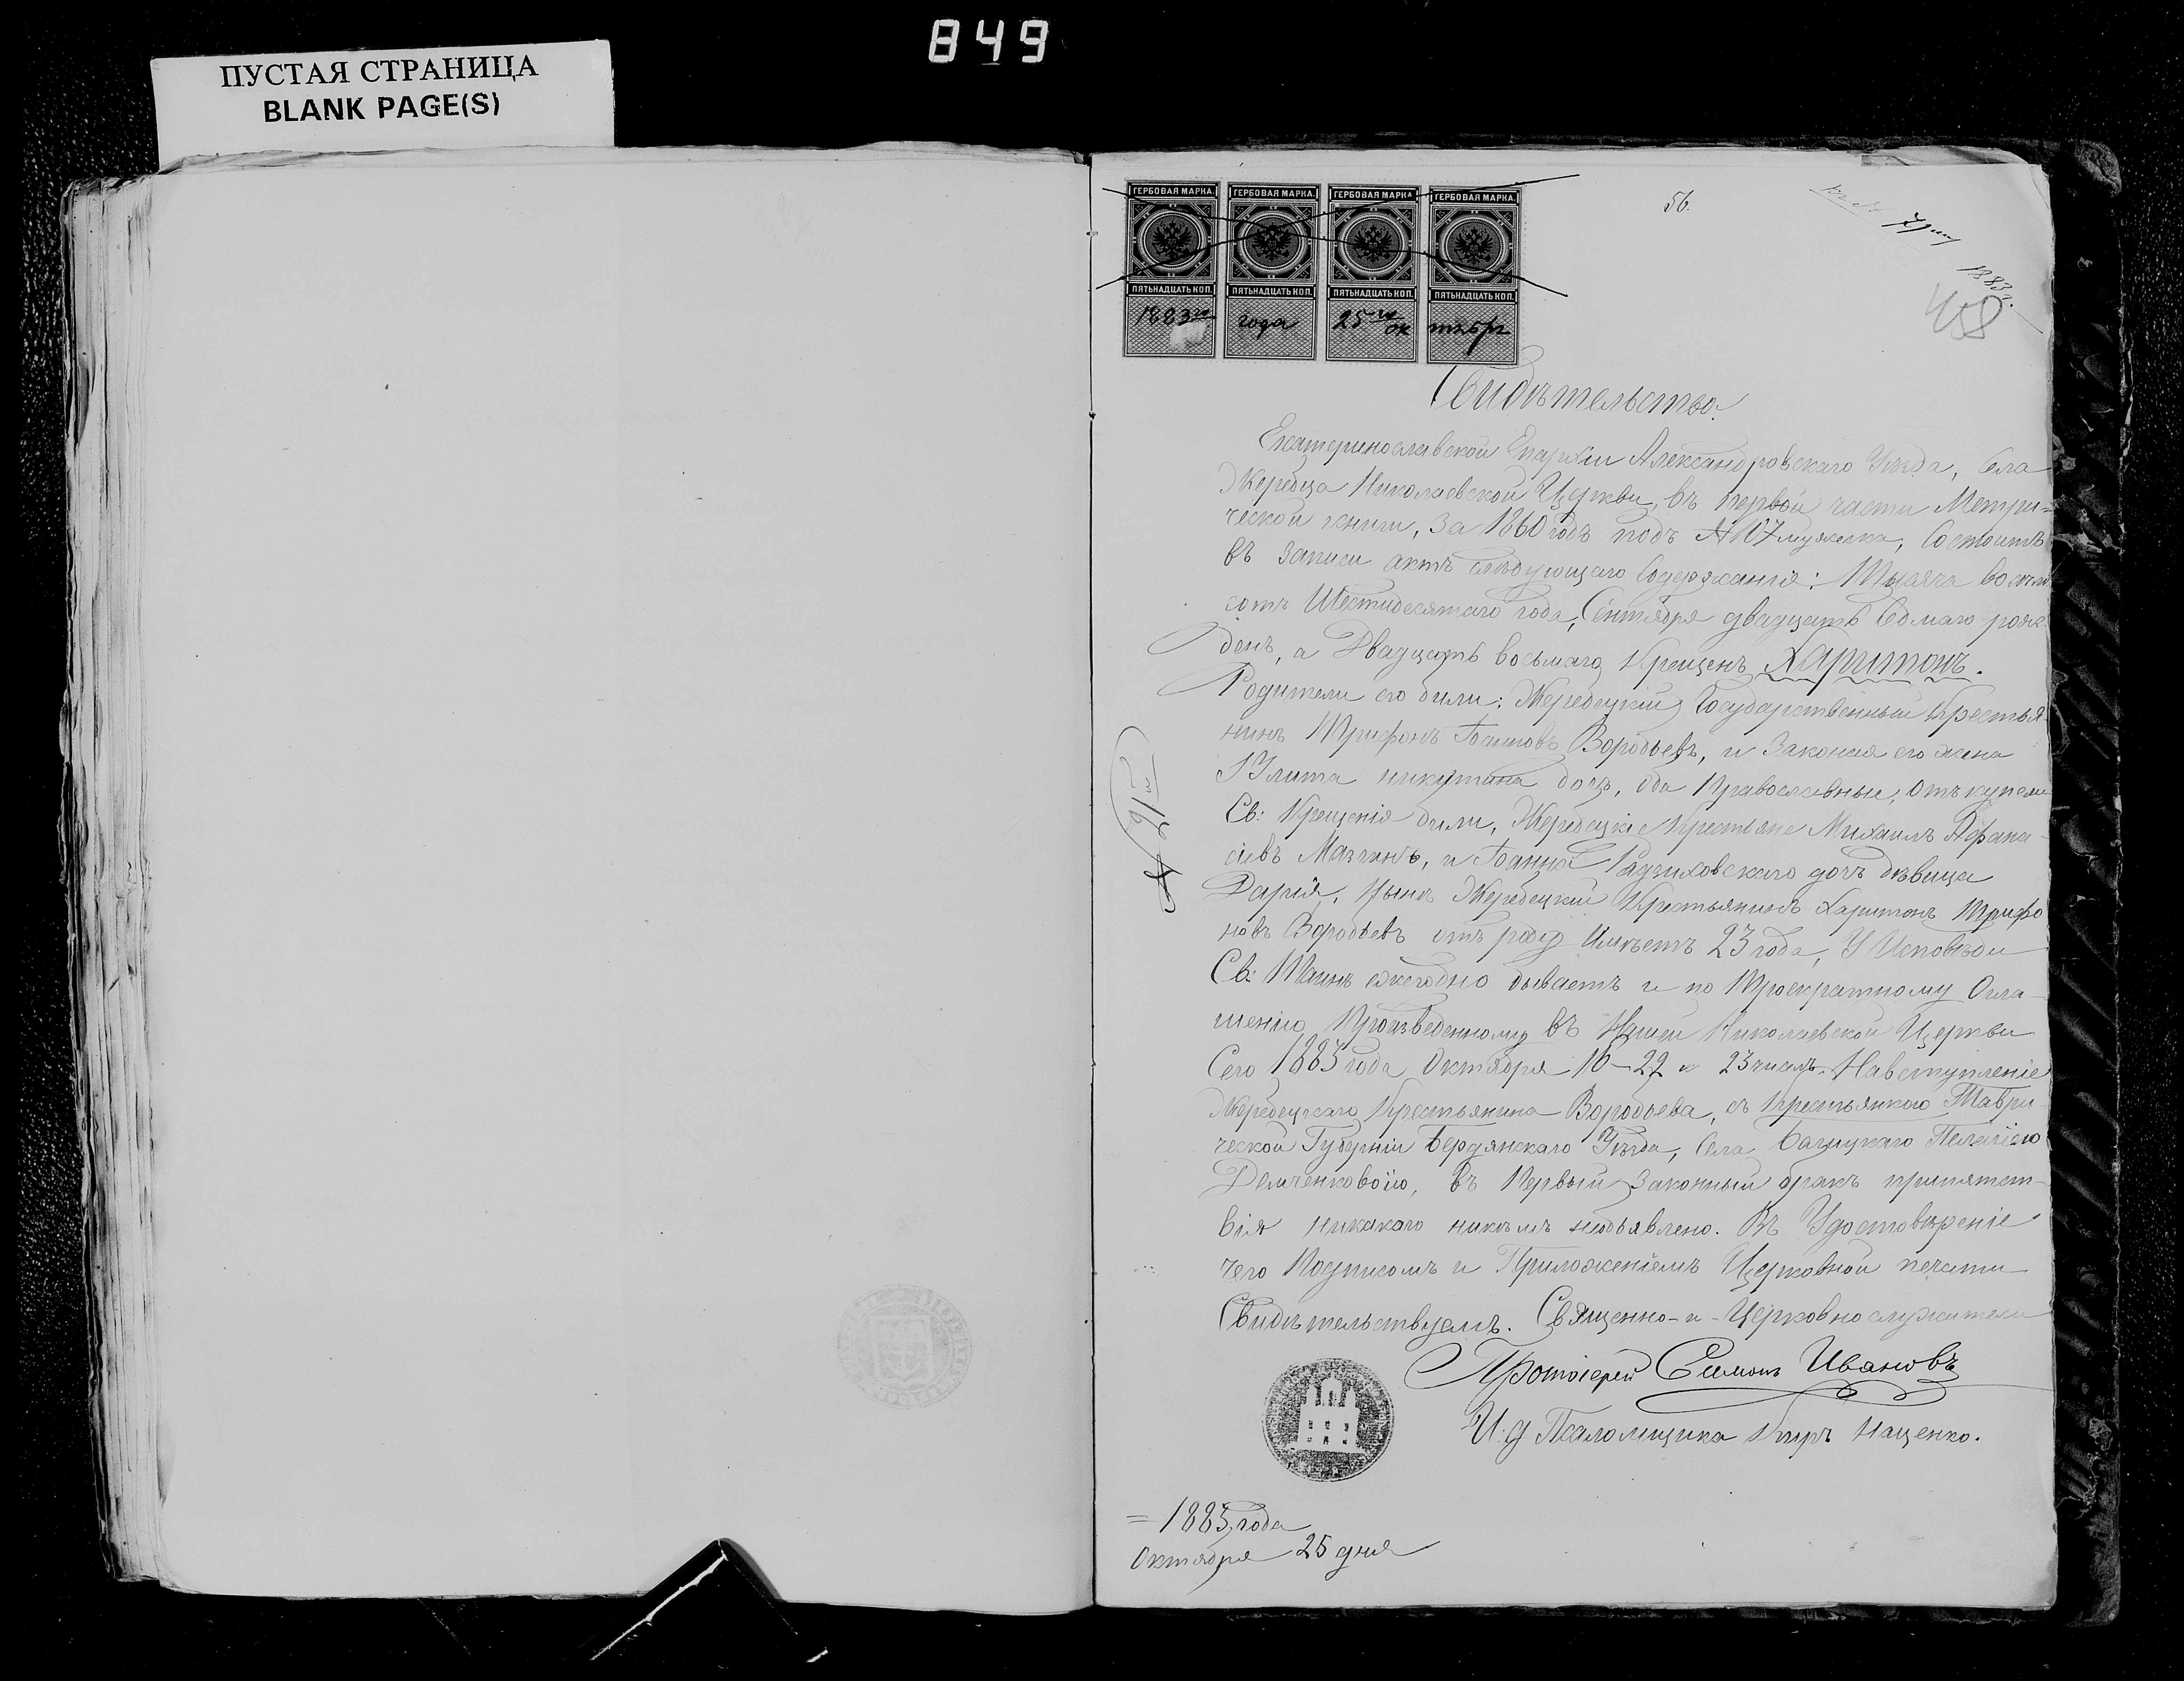 849
ПУСТАЯ СТРАНИЦА
BLANK PAGE(S)
ГЕРБОВАЯ МАРКА. ГЕРБОВАЯ МАРКА. ГЕРБОВАЯ МАРКА ГЕРБОВАЯ МАРКА.
ПЯТЬНАДЦАТЬ КОП. ПЯТЬНАДЦАТЬ КОП. ПЯТЬНАДЦАТЬ КОП. ПЯТЬНАДЦАТЬ КОП.
1883го года 25го ок тября
56.
1883 г.
458
Свидѣтельство.
Екатеринославской Епархіи Александровскаго Уѣзда, Села
Жеребца Николаевской Церкви, въ первой части Метри=
ческой книги, За 1860 годъ подъ № 107 мужеска, Состоитъ
въ записи актъ слѣдующаго Содержанія: Тысяча восемь
сотъ Шестидесятаго года, Сентября двадцать Седмаго рож-
денъ, а Двадцать восьмаго Крещенъ Харитонъ.
Родители его были: Жеребецкій Государственный Крестья-
нинъ Трифонъ Іоанновъ Воробьевъ, и Законная его жена
Улита никутина дочь, оба Православные, Отъ купели
Св: Крещенія были, Жеребецкіе Крестьяне Михаилъ Афана-
сіевъ Мазгинъ, и Іоанна Радзиховскаго дочь дѣвица
Дарія, Нынѣ Жеребецкій Крестьянинъ Харитонъ Трифо
новъ Воробьевъ отъ роду Имѣетъ 23 года, У Исповѣди
Св: Таинъ ежегодно бываетъ и по Троекратному Огла-
шенію Произведенному въ Нашей Николаевской Церкви
Сего 1883 года Октября 16-22 и 23 числъ. На вступленіе
Жеребецкаго Крестьянина Воробьева, съ Крестьянкою Таври-
ческой Губерніи Бердянскаго Уѣзда, Села Пелагіею
Демченковою, въ Первый Законный бракъ припятст-
вія никакого никѣмъ необъявлено. Въ Удостовѣреніе
чего Подписомъ и Приложеніемъ Церковной печати
Свидѣтельствуемъ. Священно-и-Церковнослужители
Протоіерей Симонъ Ивановъ
И. д Псаломщика Киръ Наценко.
№ 91й
= 1883 года
Октября 25 дня